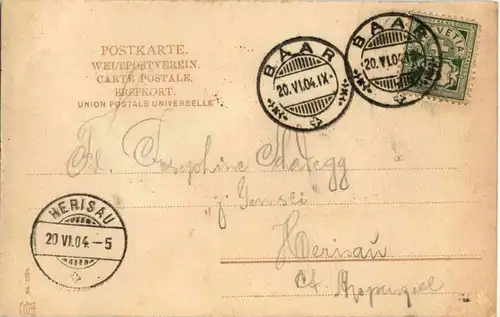 POSTKARTE.
WELTPOSTVEREIN.
CARTE POSTALE
BREFKORT.
UNION POSTALE UNIVERSELLE
BAAR
20.VI.04.IX.
BAAR
20.VI.04
HELVETIA
5
Josephine
Herisau
Ct. Appenzel
HERISAU
20 VI.04.-5